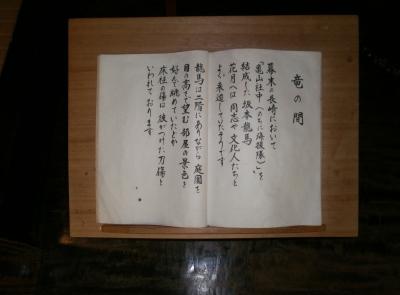 竜の間
幕末の長崎において
「亀山社中（のちに海援隊）」を
結成した 坂本龍馬
花月へは 同志や文化人たちと
よく来遊していたそうです
龍馬は二階にありながら 庭園を
目の高さで望む 部屋の景色を
好んで眺めていたとか
床柱の傷は 彼がつけた刀傷と
いわれております